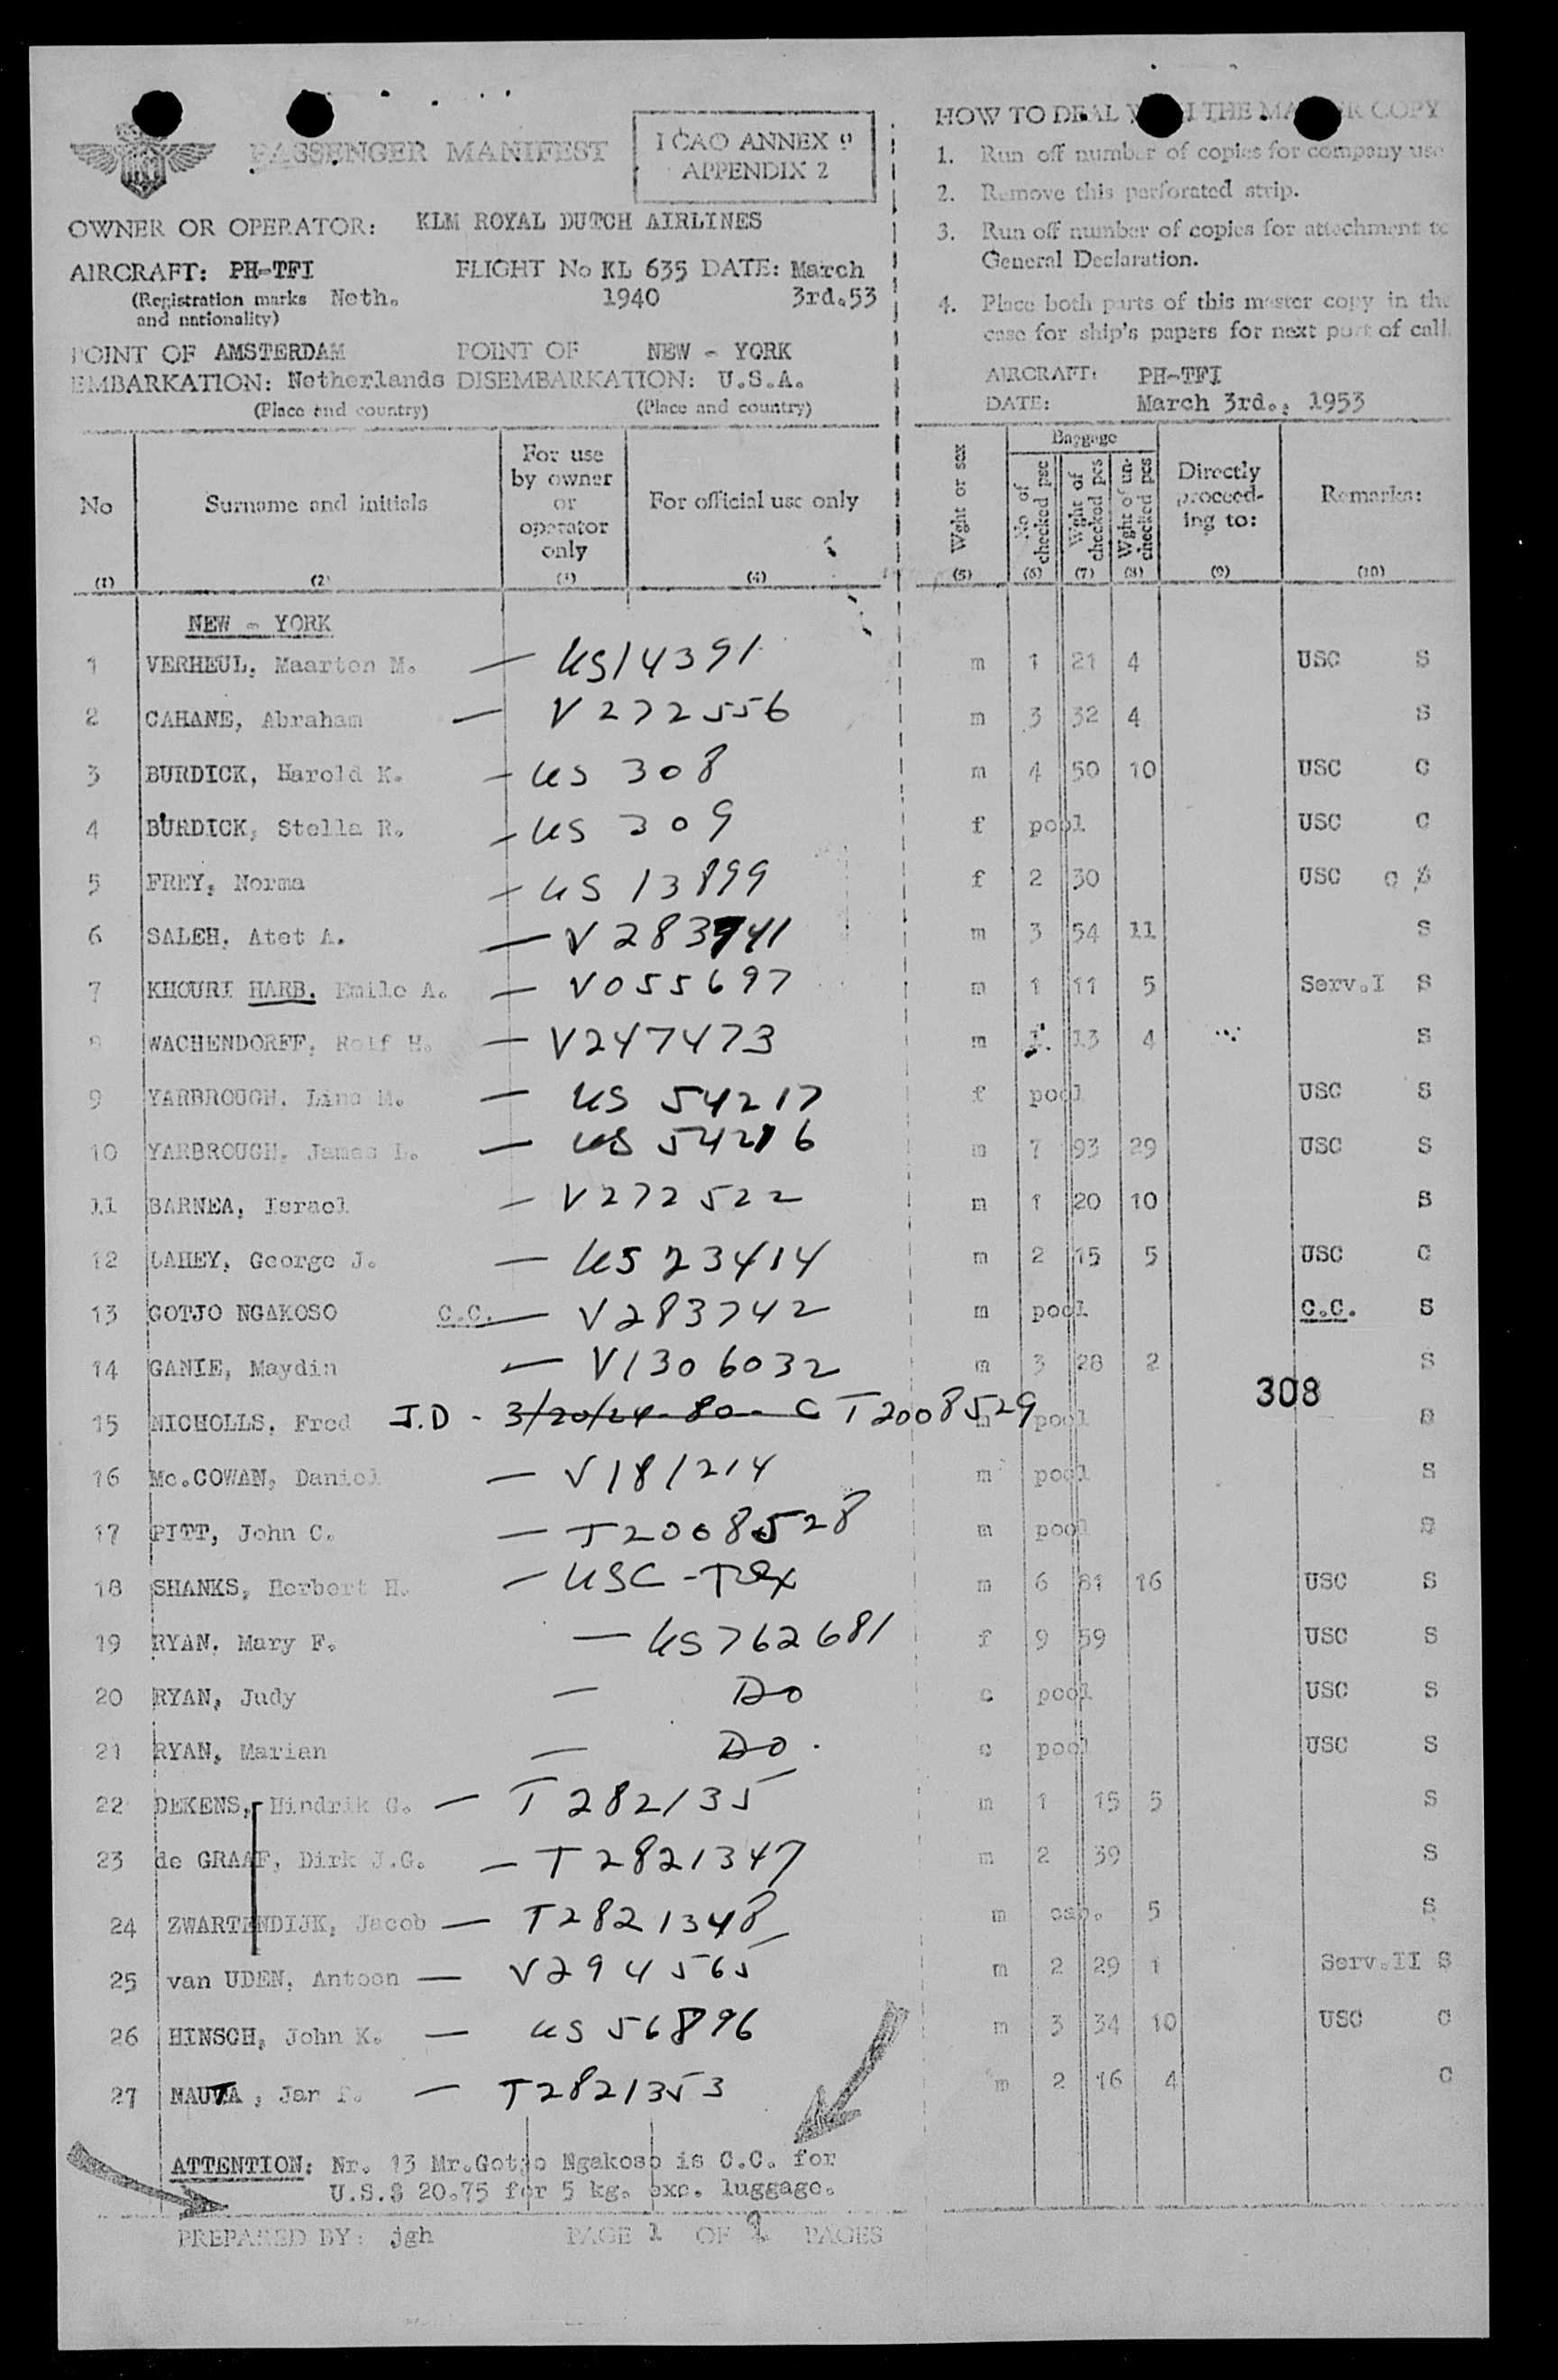 PASSENGER MANIFEST
ICAO ANNEX 9
APPENDIX 2
OWNER OR OPERATOR: KLM ROYAL DUTCH AIRLINES
AIRCRAFT: PH-TFI FLIGHT No KL 635 DATE: March
(Registration marks Neth. 1940 3rd.53
and nationality)
POINT OF AMSTERDAM POINT OF NEW - YORK
EMBARKATION: Netherlands DISEMBARKATION: U.S.A.
(Place and country) (Place and country)
HOW TO DEAL THE COPY
1. Run off number of copies for company use
2. Remove this perforated strip.
3. Run off number of copies for attachment to
General Declaration.
4. Place both parts of this master copy in the
case for ship's papers for next port of call.
AIRCRAFT: PH-TFI
DATE: March 3rd., 1953
No
Surname and initials
For use
by owner
or
operator
only
For official use only
Wght or sex
Baggage
No of
checked pce
Wght of
checked pcs
Wght of un-
checked pcs
Directly
proceed-
ing to:
Remarks:
(1) (2) (3) (4) (5) (6) (7) (8) (9) (10)
NEW - YORK
1 VERHEUL, Maarten M. — US14391 m 1 21 4 USC S
2 CAHANE, Abraham — V272556 m 3 32 4 S
3 BURDICK, Harold K. — US 308 m 4 50 10 USC C
4 BURDICK, Stella R. — US 309 f pool USC C
5 FREY, Norma — US 13899 f 2 30 USC C S
6 SALEH, Atet A. — V 283741 m 3 54 11 S
7 KHOURI HARB, Emile A. — V055697 m 1 11 5 Serv.I S
8 WACHENDORFF, Rolf H. — V247473 m 1 13 4 S
9 YARBROUGH, Lina M. — US 54217 f pool USC S
10 YARBROUGH, James L. — US 54216 m 7 93 29 USC S
11 BARNEA, Israel — V272522 m 1 20 10 S
12 LAHEY, George J. — US 23414 m 2 15 5 USC C
13 GOTJO NGAKOSO C.C. — V283742 m pool C.C. S
14 GANIE, Maydin — V1306032 m 3 28 2 S
308
15 NICHOLLS, Fred I.D - 3/20/24 - 80 - C T2008529 m pool S
16 Mc.COWAN, Daniel — V181214 m pool S
17 PITT, John C. — T2008528 m pool S
18 SHANKS, Herbert H. — USC - m 6 81 16 USC S
19 RYAN, Mary F. — US762681 f 9 59 USC S
20 RYAN, Judy — DO c pool USC S
21 RYAN, Marian — DO. c pool USC S
22 DEKENS, Hindrik G. — T 282135 m 1 15 5 S
23 de GRAAF, Dirk J.G. — T2821347 m 2 39 S
24 ZWARTENDIJK, Jacob — T2821348 m cab. 5 S
25 van UDEN, Antoon — V294565 m 2 29 1 Serv.II S
26 HINSCH, John K. — US 56896 m 3 34 10 USC C
27 NAUTA, Jan — T2821353 m 2 16 4 C
ATTENTION: Nr. 13 Mr.Gotjo Ngakoso is C.C. for
U.S.$ 20.75 for 5 kg. exc. luggage.
PREPARED BY: jgh PAGE 1 OF PAGES